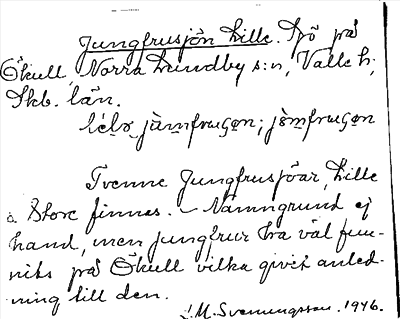 Jungfrusjön Lille. Sjö på
Ökull, Norra Lundby s:n, Valle h;
Skb. län.
jàm̲fruʂo̲n; jòm̲fruʂo̲n
Tvenne Jungfrusjöar, Lille
o. Store finnes. – Namngrund ej
hand, men jungfrur ha väl fun-
nits på Ökull vilka givit anled-
ning till den.
L.M. Svenungsson. 1946.